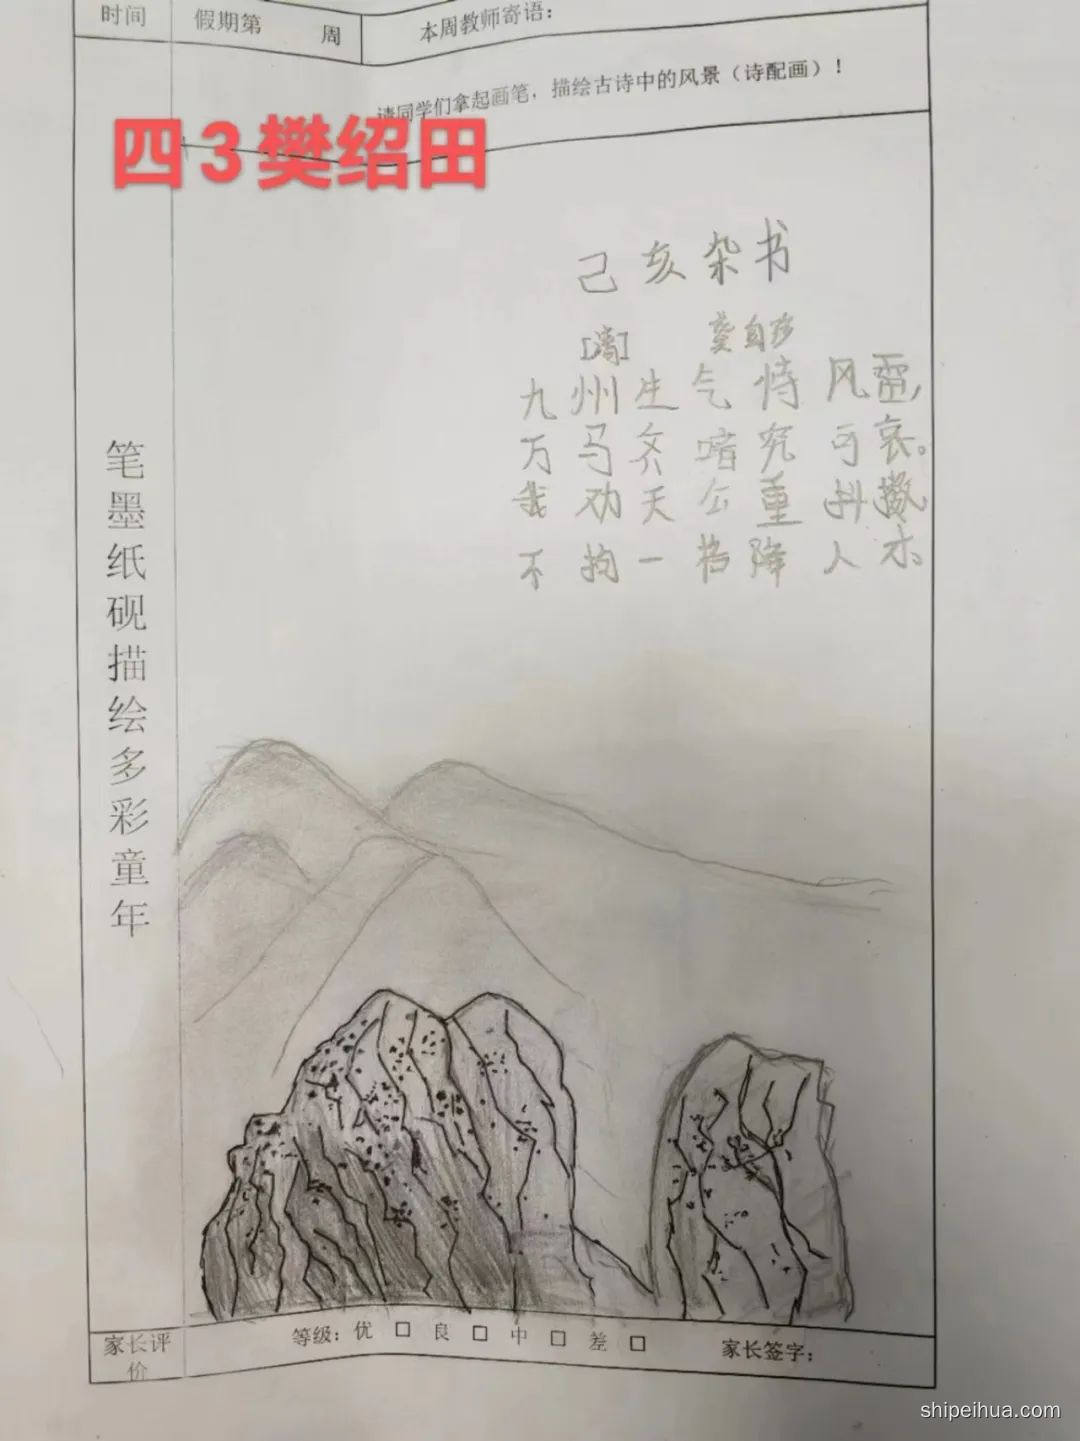 时间 假期第 周 本周教师寄语：
请同学们拿起画笔，描绘古诗中的风景（诗配画）！
四3樊绍田
己亥杂书
[清] 龚自珍
九州生气恃风雷，
万马齐喑究可哀。
我劝天公重抖擞
不拘一格降人才。
笔墨纸砚描绘多彩童年
家长评价
等级：优 □ 良 □ 中 □ 差 □ 家长签字：
shipeihua.com